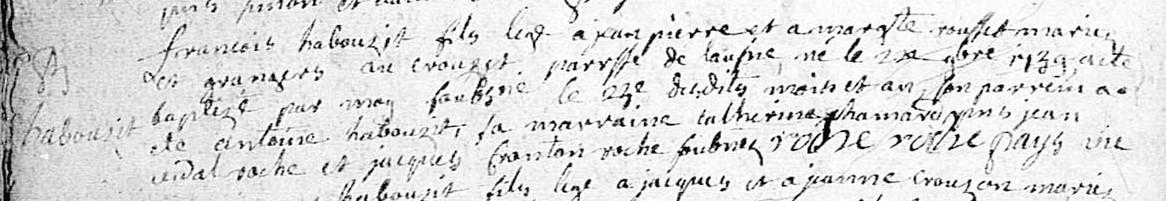 francois habouzit fils lege a jean pierre et a margte rousset maries
et grangers au crouzet parsse de lausne, ne le 22 9bre 1739 a ete
baptizé par moy soubsne le 23e dudits mois et an son parrein a
habouzit
ete antoine habouzit, sa marraine catherine chamard pnts jean
vidal roche et jacques Cronton roche soubnes roche roche pays vic
habouzit fils lege a jacques et a jeanne crouzon maries